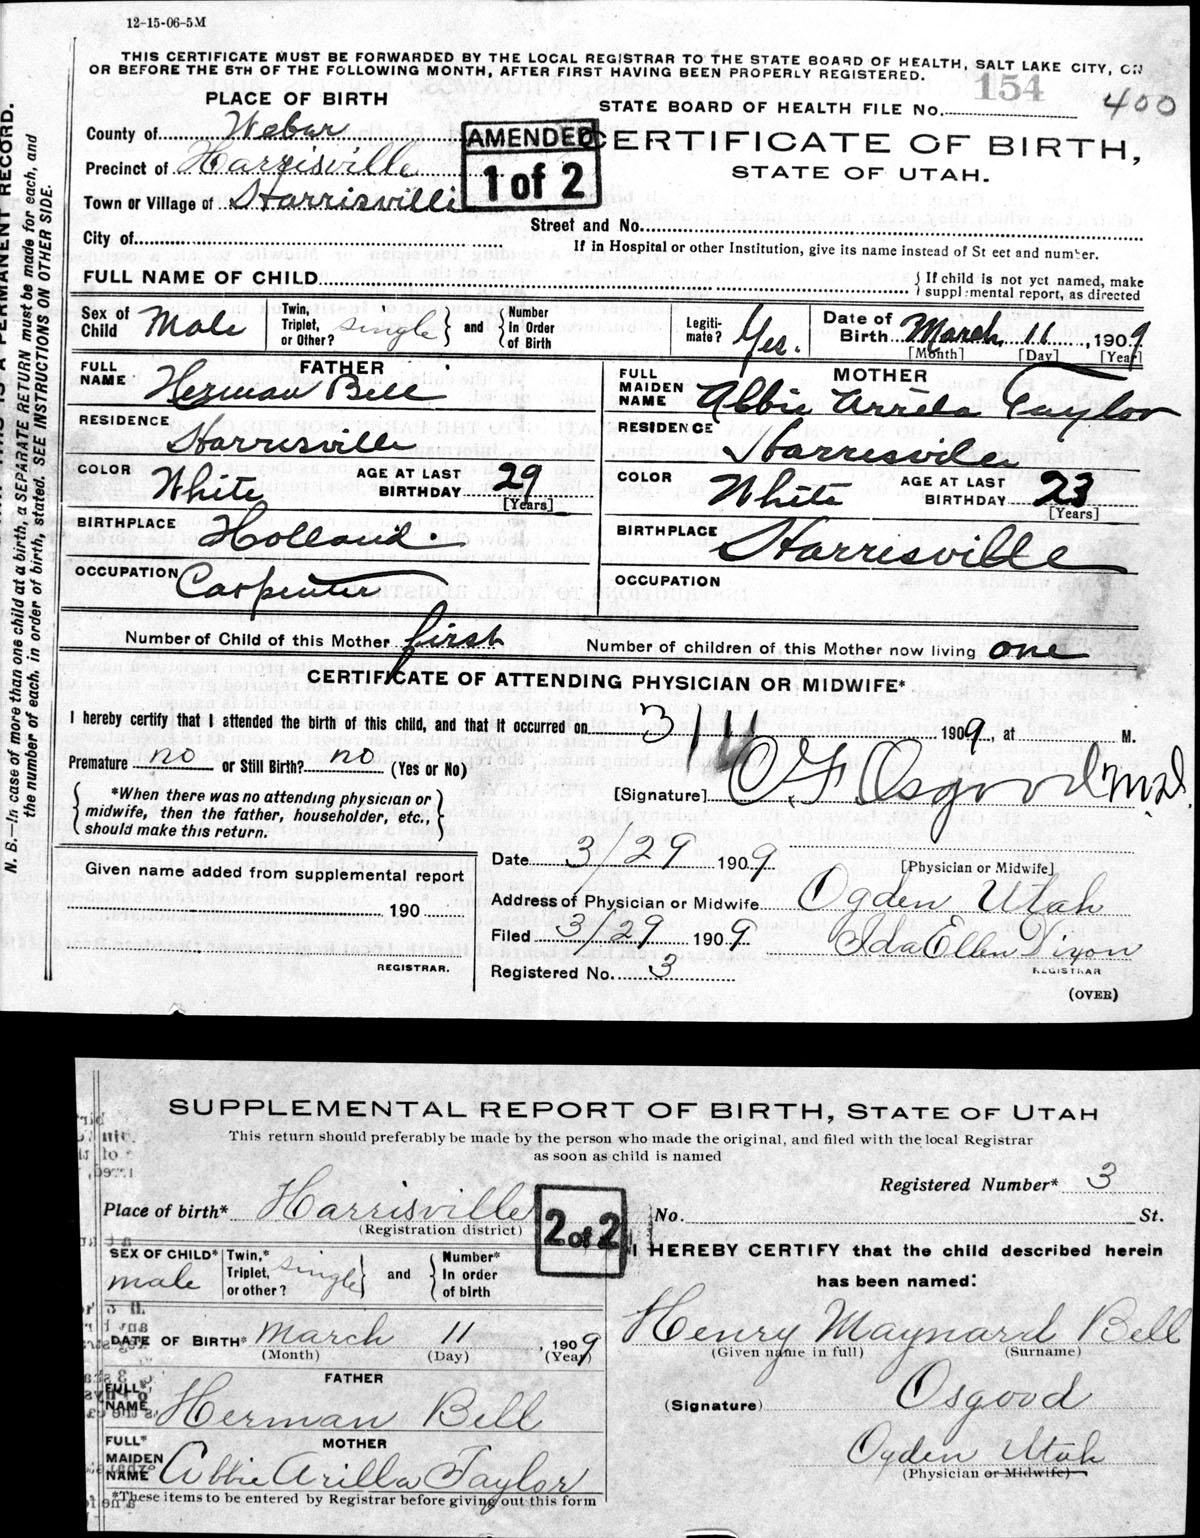 12-15-06-5M
THIS CERTIFICATE MUST BE FORWARDED BY THE LOCAL REGISTRAR TO THE STATE BOARD OF HEALTH, SALT LAKE CITY, ON
OR BEFORE THE 5TH OF THE FOLLOWING MONTH, AFTER FIRST HAVING BEEN PROPERLY REGISTERED.
154
400
PLACE OF BIRTH
STATE BOARD OF HEALTH FILE No.
County of Weber
AMENDED
1 of 2
CERTIFICATE OF BIRTH,
STATE OF UTAH.
Precinct of Harrisville
Town or Village of Harrisville
Street and No.
City of
If in Hospital or other Institution, give its name instead of St eet and number.
FULL NAME OF CHILD
If child is not yet named, make
supplemental report, as directed
Sex of Child Male
Twin, Triplet, or Other? single and Number In Order of Birth
Legiti-mate? Yes.
Date of Birth March 11, 1909
[Month] [Day] [Year]
FATHER
FULL NAME Herman Bell
MOTHER
FULL MAIDEN NAME Abbie Arrela Taylor
RESIDENCE Harrisville
RESIDENCE Harrisville
COLOR White AGE AT LAST BIRTHDAY 29 [Years]
COLOR White AGE AT LAST BIRTHDAY 23 [Years]
BIRTHPLACE Holland.
BIRTHPLACE Harrisville
OCCUPATION Carpenter
OCCUPATION
Number of Child of this Mother first Number of children of this Mother now living one
CERTIFICATE OF ATTENDING PHYSICIAN OR MIDWIFE*
I hereby certify that I attended the birth of this child, and that it occurred on 3/11 1909, at M.
Premature no or Still Birth? no (Yes or No)
[Signature] O F Osgood M.D.
*When there was no attending physician or
midwife, then the father, householder, etc.,
should make this return.
Date 3/29 1909
[Physician or Midwife]
Given name added from supplemental report
190
REGISTRAR.
Address of Physician or Midwife Ogden Utah
Filed 3/29 1909 Ida Ellen Dixon
REGISTRAR
Registered No. 3
(OVER)
N. B.—In case of more than one child at a birth, a SEPARATE RETURN must be made for each, and
the number of each, in order of birth, stated. SEE INSTRUCTIONS ON OTHER SIDE.
THIS IS A PERMANENT RECORD.
SUPPLEMENTAL REPORT OF BIRTH, STATE OF UTAH
This return should preferably be made by the person who made the original, and filed with the local Registrar
as soon as child is named
Registered Number* 3
Place of birth* Harrisville
(Registration district)
2 of 2
No. St.
SEX OF CHILD* male
Twin,* Triplet, or other? single and Number* In order of birth
I HEREBY CERTIFY that the child described herein
has been named:
DATE OF BIRTH* March 11, 1909
(Month) (Day) (Year)
Henry Maynard Bell
(Given name in full) (Surname)
FATHER
FULL* NAME Herman Bell
(Signature) Osgood
MOTHER
FULL* MAIDEN NAME Abbie Arilla Taylor
Ogden Utah
(Physician or Midwife)
*These items to be entered by Registrar before giving out this form